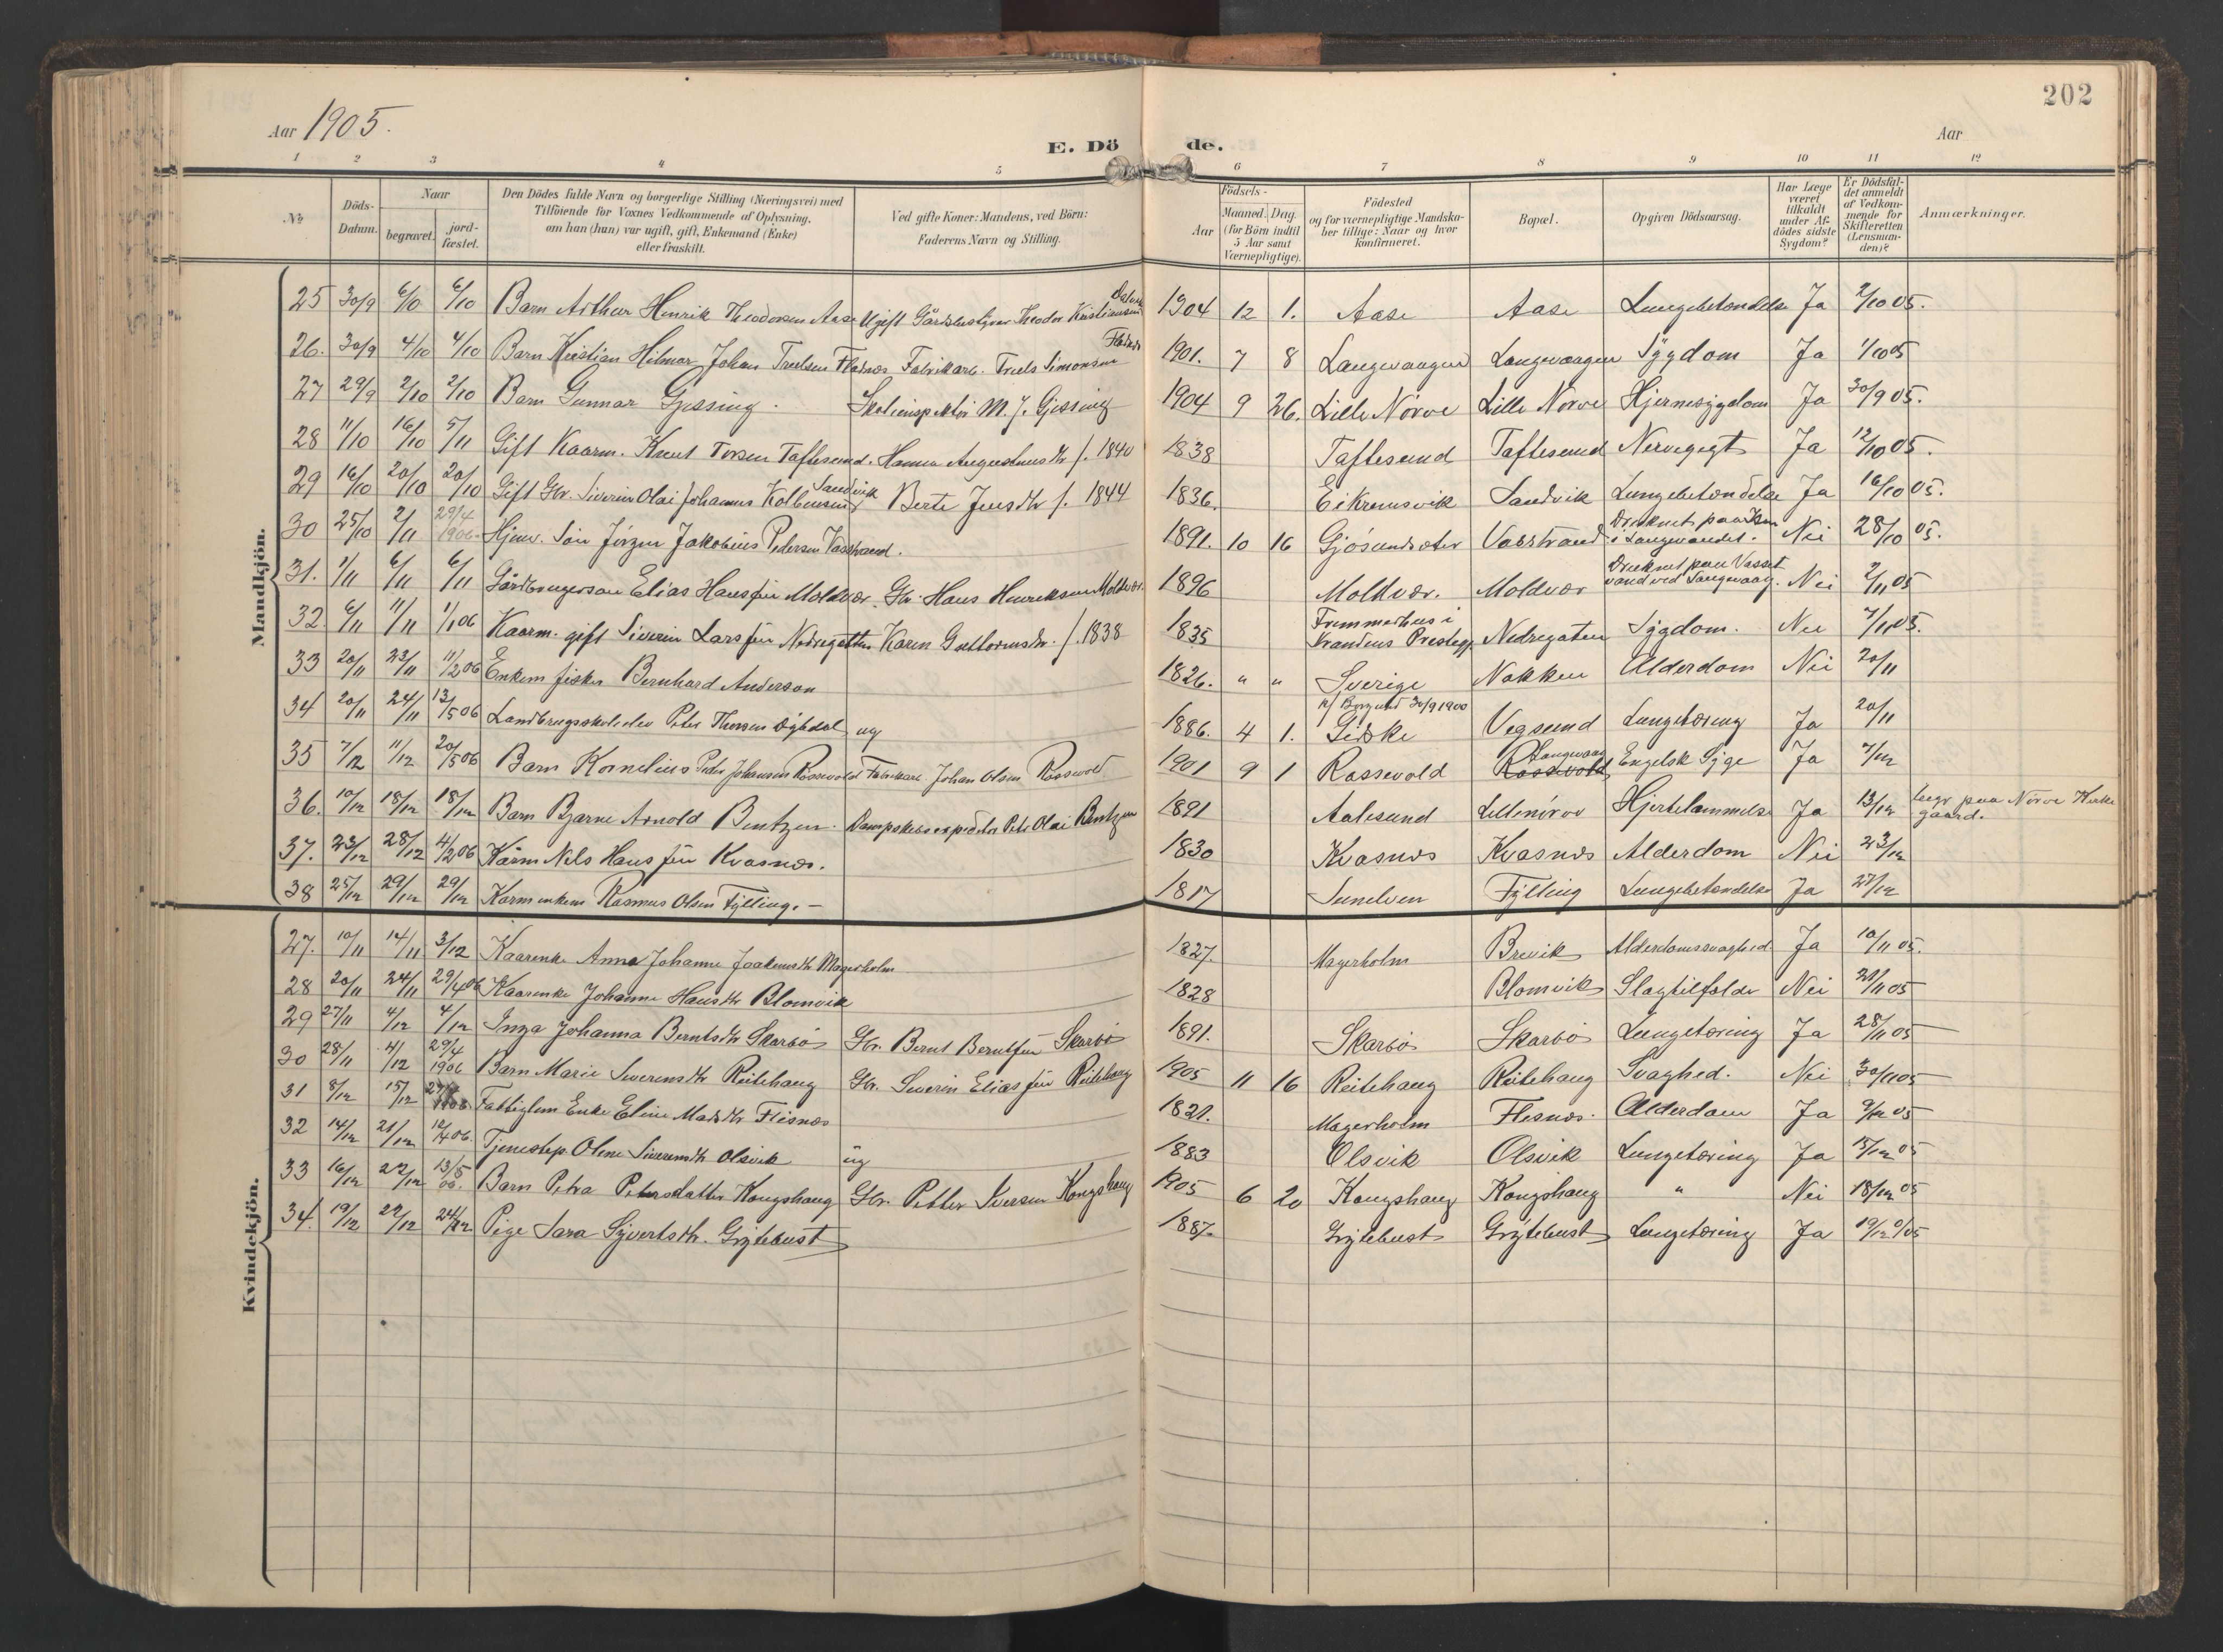 202
Aar 1905.
E. Dö de.
Aar
1 2 3 4 5 6 7 8 9 10 11 12
No
Döds-Datum.
Naar
begravet.
jord-fæstet.
Den Dödes fulde Navn og borgerlige Stilling (Næringsvei) med
Tilföiende for Voxnes Vedkommende af Oplysning,
om han (hun) var ugift, gift, Enkemand (Enke)
eller fraskilt.
Ved gifte Koner: Mandens, ved Börn:
Faderens Navn og Stilling.
Födsels-
Aar
Maaned. Dag.
(for Börn indtil
5 Aar samt
Værnepligtige).
Födested
og for værnepligtige Mandska-
ber tillige: Naar og hvor
konfirmeret.
Bopæl.
Opgiven Dödsaarsag.
Har Læge
været
tilkaldt
under Af-
dödes sidste
Sygdom?
Er Dödsfal-
det anmeldt
af Vedkom-
mende for
Skifteretten
(Lensman-
den)?
Anmærkninger.
Mandkjön.
25 30/9 6/10 6/10 Barn Arthur Henrik Theodorsen Aase Ugift Gårdbestyrer Theodor Kristiansen 1904 12 1. Aase Aase Lungebetændelse Ja 2/10 05.
26. 30/9 4/10 4/10 Barn Kristian Hilmar Johan Truelsen Flisnes Fabrikarb. Truels Simonsen Flisnes 1901. 7 8 Langevaagen Langevaagen Sygdom Ja 1/10 05
27 29/9 2/10 2/10 Barn Gunnar Gjessing. Skoleinspektør M. J. Gjessing 1904 9 26. Lille Nörve Lille Nörve Hjernesygdom Ja 30/9 05.
28 11/10 16/10 5/11 Gift Kaarm. Knut Torsen Taftesund. Hanna Augustinusdtr f. 1840 1838 Taftesund Taftesund Nervegigt Ja 12/10 05.
29 16/10 20/10 20/10 Gift Gbr. Siverin Olai Johannes Kolbensen Sandvik Berte Jensdtr f. 1844 1836. Eikremsvik Sandvik Lungebetændelse Ja 16/10 05.
30 25/10 2/11 29/4 1906. Hjemv. Søn Jørgen Jakobius Pedersen Vasstrand. 1891. 10 16 Gjøsundsæter Vasstrand Druknet paa Isen i Langevandet. Nei 28/10 05.
31. 1/11 6/11 6/11 Gårdbrugersøn Elias Hansen Moldvær. Gbr. Hans Henriksen Moldvær. 1896 Moldvær. Moldvær Druknet paa Vasset vand ved Langevaag. Nei 2/11 05
32 6/11 11/11 1/1 06 Kaarm. gift Siverin Larsen Nedregotten Karen Guttormsdtr. f. 1838 1835 Frimmerhus i Vrandens Prestegj. Nedregaten Sygdom. Nei 7/11 05.
33 20/11 23/11 11/2 06 Enkem fisker Bernhard Anderson 1826. " " Sverige Nakken Alderdom Nei 20/11
34 20/11 24/11 13/5 06 Landbrugsskoleelev Peter Thorsen Øgedal ug 1886. 4 1. k/ Borgund 30/9 1900 Giske Vegsund Lungetæring Ja 20/11
35 7/12 11/12 20/5 06 Barn Kornelius Peder Johansen Rassevold Fabrikarb. Johan Olsen Rassevold 1901 9 1 Rassevold Langevaag Engelsk Syge Ja 7/12
36. 10/12 18/12 18/12 Barn Bjarne Arnold Bentzen. Dampskibsexpeditør Peter Olai Bentzen 1891 Aalesund Lillenörve Hjertelammelse Ja 13/12 begr paa Nörve Kirkegaard.
37. 23/12 28/12 4/2 06 Kårm Nils Hansen Kvasnes. 1830 Kvasnes Kvasnes Alderdom Nei 23/12
38 25/12 29/12 29/12 Kårm enkem Rasmus Olsen Fylling. 1817 Sunelven Fylling Lungebetændelse Ja 27/12
Kvindekjön.
27. 10/11 14/11 3/12 Kaarenke Anna Johanne Joakimsdtr Magerholm 1827. Magerholm Brevik Alderdomssvaghed. Ja 10/11 05.
28 20/11 24/11 29/4 06 Kaarenke Johanne Hansdtr Blomvik 1828 Blomvik Slagtilfælde Nei 21/11 05
29 27/11 4/12 4/12 Inga Johanna Berntsdtr Skarbø Gbr. Bernt Berntsen Skarbø 1891. Skarbø Skarbø Lungetæring Ja 28/11 05
30 28/11 4/12 29/4 1906 Barn Marie Severinsdtr Reitehaug Gbr. Severin Eliassen Reitehaug 1905 11 16 Reitehaug Reitehaug Svaghed. Nei 30/11 05
31 8/12 15/12 Fattiglem Enke Eline Madsdtr Flisnes 1821. Magerholm Flesnes. Alderdom Ja 9/12 05
32 14/12 21/12 12/4 06. Tjenestep. Oline Siverinsdtr Olsvik ug 1883 Olsvik Olsvik Lungetæring Ja 15/12 05
33 16/12 22/12 13/5 06. Barn Petra Petersdatter Kongshaug Gbr. Petter Iversen Kongshaug 1905 6 20 Kongshaug Kongshaug " Nei 18/12 05
34. 19/12 22/12 24/12 Pige Sara Syvertsdtr. Grytebust 1887. Grytebust Grytebust Lungetæring Ja 19/12 05